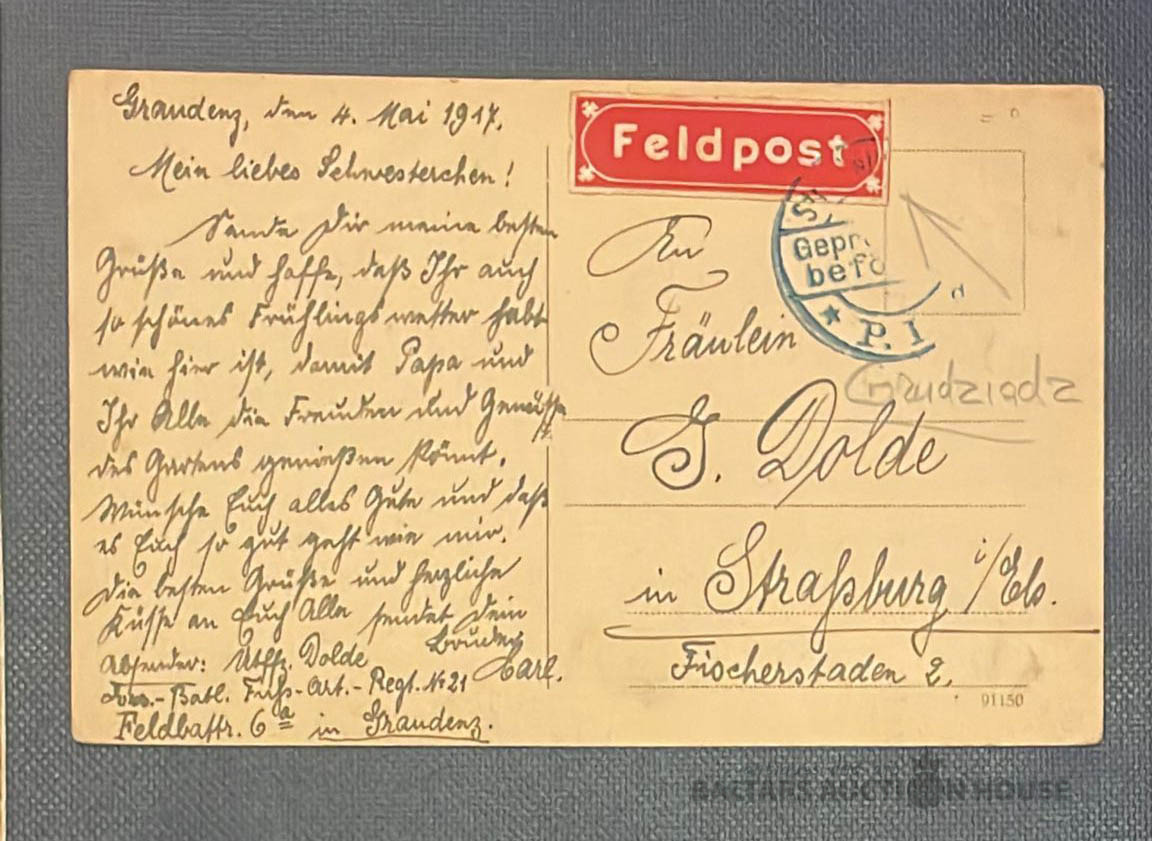 Graudenz, den 4. Mai 1917.
Mein liebes Schwesterchen!
Sende Dir meine besten
Grüße und hoffe, daß Ihr auch
so schönes Frühlingswetter habt
wie hier ist, damit Papa und
Ihr Alle die Freuden und Genüsse
des Gartens genießen könnt.
Wünsche Euch alles Gute und daß
es Euch so gut geht wie mir.
Die besten Grüße und herzliche
Küsse an Euch Alle sendet Dein
Bruder
Carl.
Absender: Utffz. Dolde
Batl. Fuß-Art.-Regt. № 21
Feldbattr. 6a in Graudenz.
Feldpost
Gepr
befö
★ P. I
d
An
Fräulein
Graudziadz
S. Dolde
in Straßburg i/Els.
Fischerstaden 2.
91150
BALTARS AUCTION HOUSE